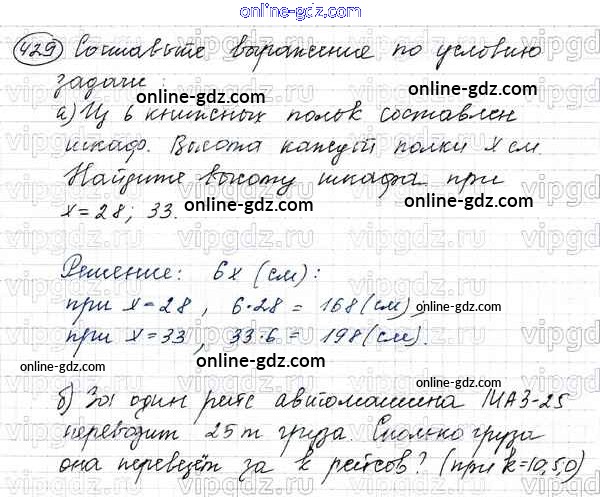 online-gdz.com
429 Составьте выражение по условию
задачи:
online-gdz.com online-gdz.com
а) Из 6 книжных полок составлен
шкаф. Высота каждой полки x см.
online-gdz.com
Найдите высоту шкафа при
x=28; 33.
online-gdz.com
Решение: 6x (см):
при x=28, 6·28 = 168 (см)
online-gdz.com
при x=33, 33·6 = 198 (см).
online-gdz.com online-gdz.com
б) За один рейс автомашина МАЗ-25
online-gdz.com
перевозит 25 т груза. Сколько груза
она перевезёт за k рейсов? (при k=10,50)
online-gdz.com